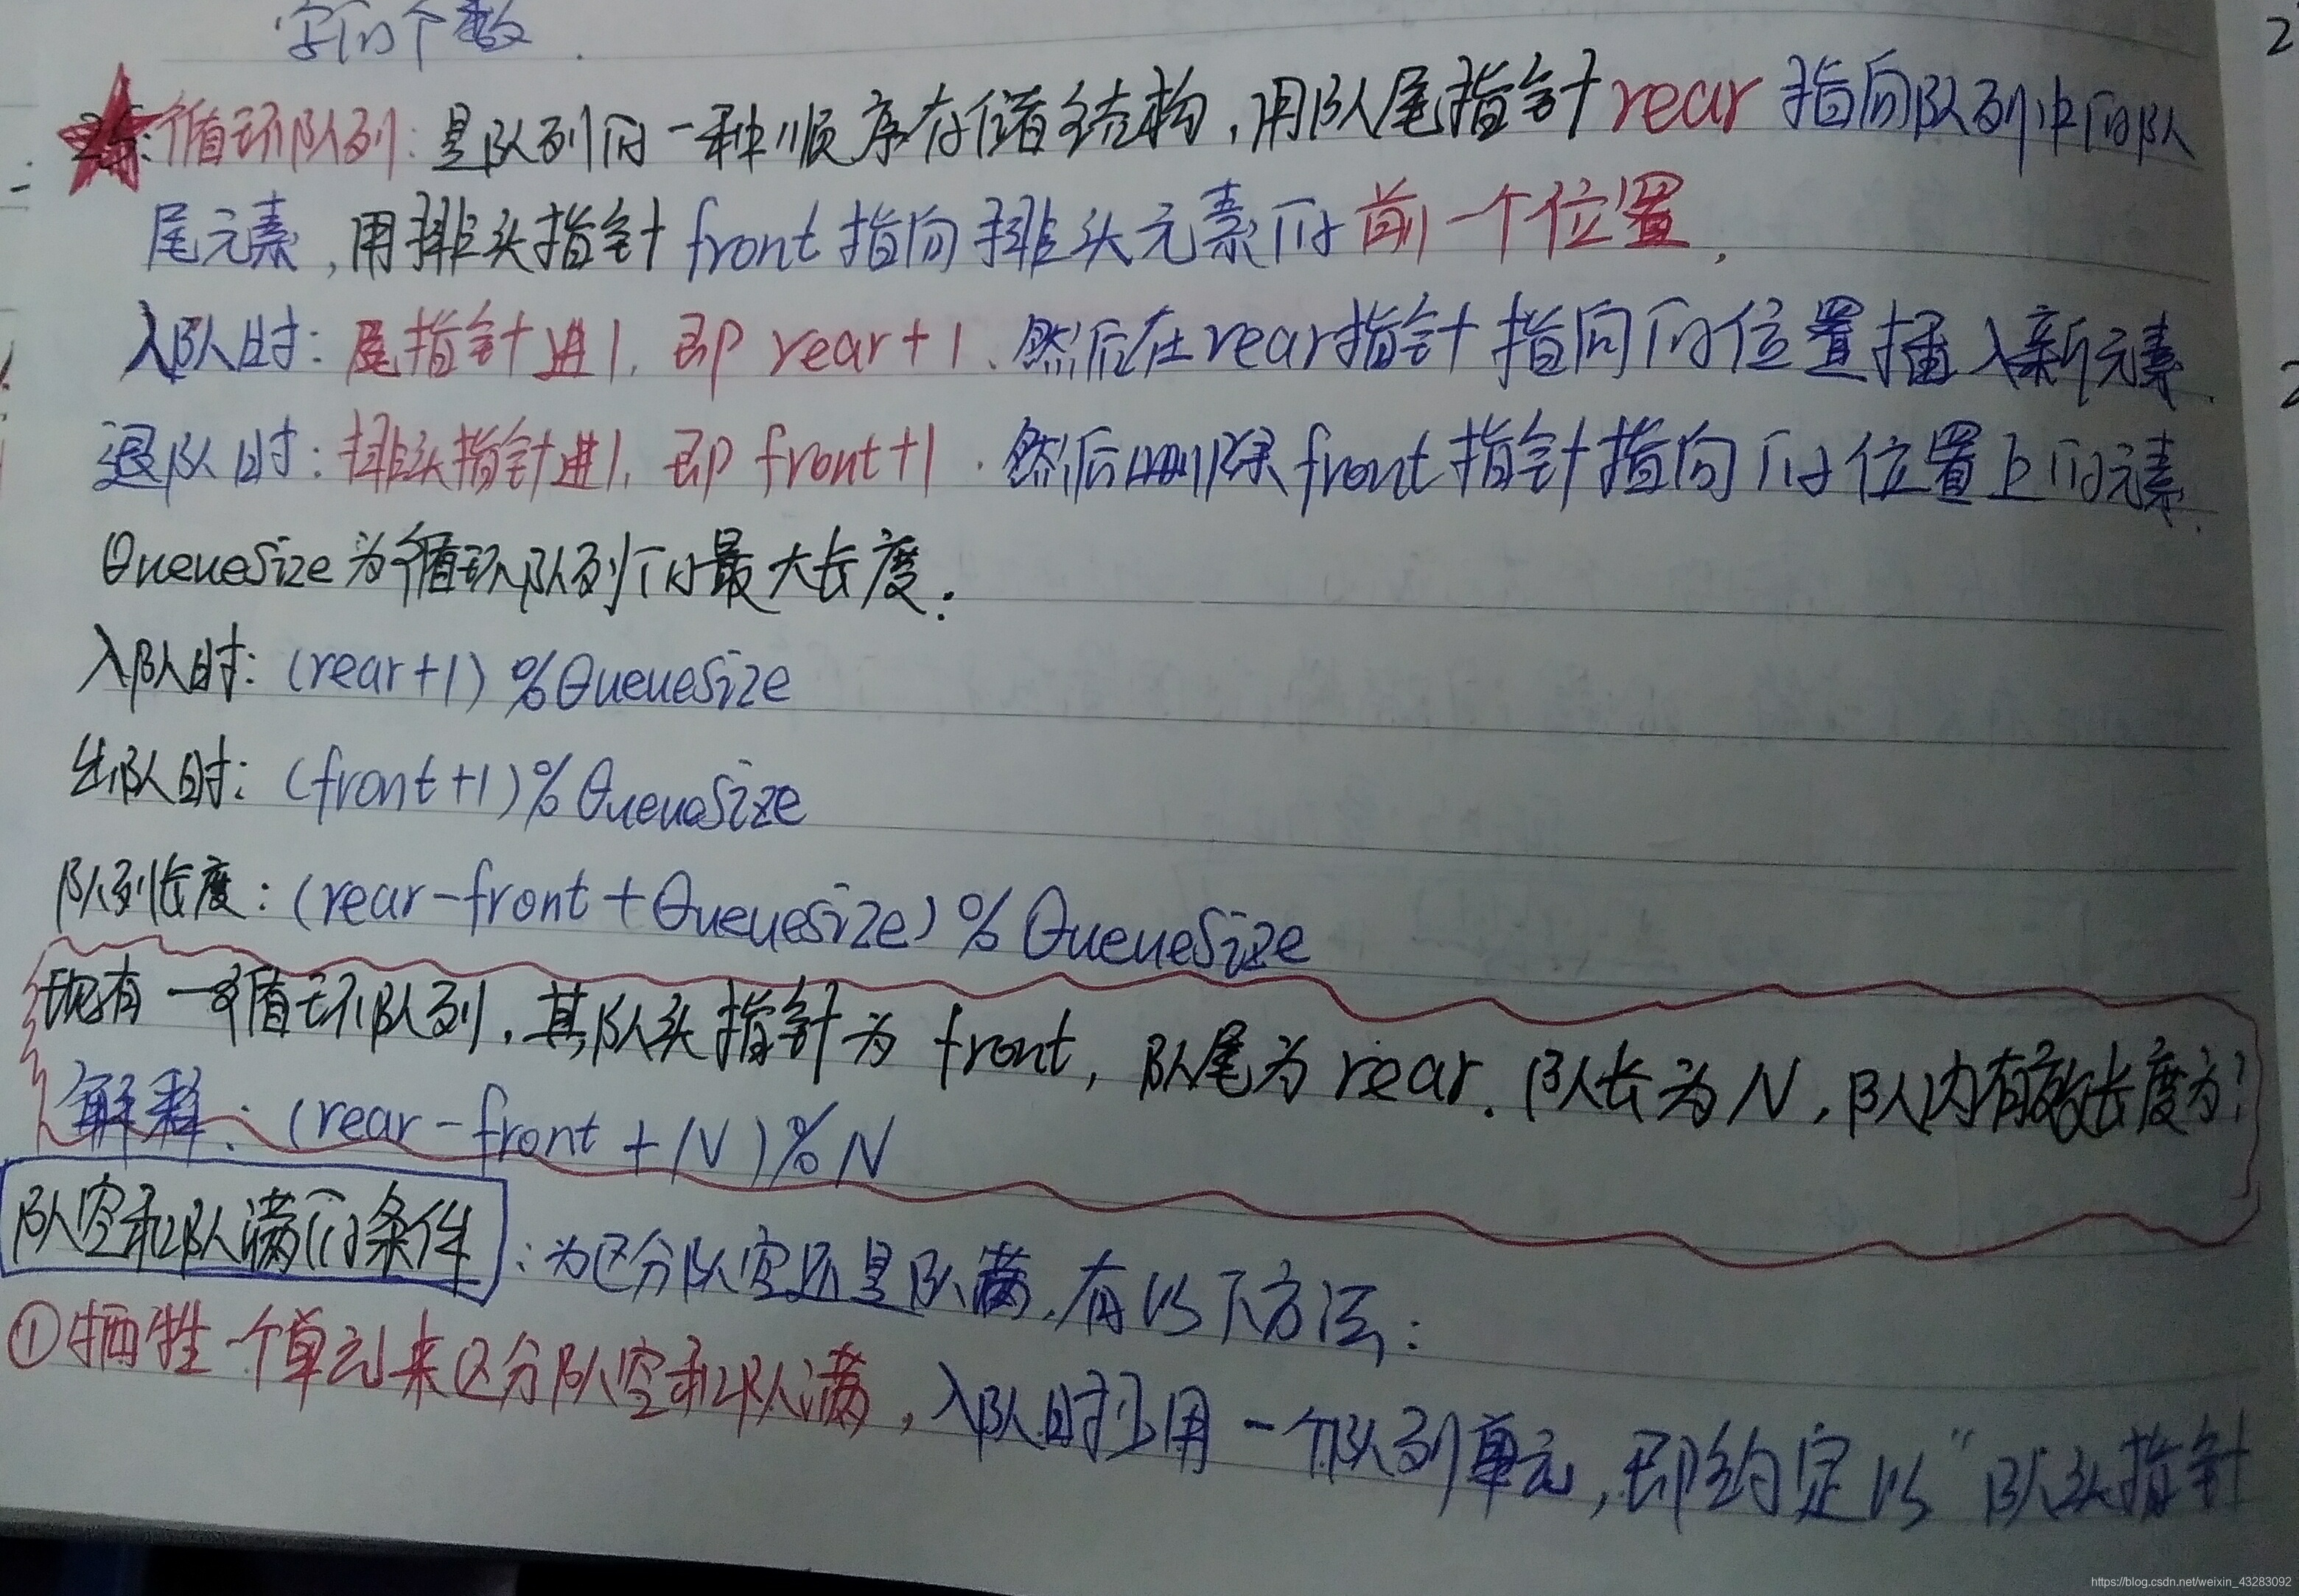 字的个数.
循环队列: 是队列的一种顺序存储结构,用队尾指针rear 指向队列中的队
尾元素,用排头指针front指向排头元素的前一个位置.
入队时: 尾指针进1. 即 rear+1、然后在rear指针指向的位置插入新元素.
退队时: 排头指针进1. 即 front+1. 然后删除front指针指向的位置上的元素.
QueueSize为循环队列的最大长度.
入队时: (rear+1) %QueueSize
出队时: (front+1)%QueueSize
队列长度: (rear-front+QueueSize)%QueueSize
现有一循环队列,其队头指针为 front, 队尾为rear. 队长为N,队内有效长度为?
解释: (rear-front+N)%N
队空和队满的条件: 为区分队空还是队满,有以下方法:
①牺牲一个单元来区分队空和队满,入队时少用一个队列单元,即约定以"队头指针
https://blog.csdn.net/weixin_43283092